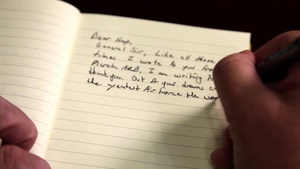 Dear Hap,
General Sir, Like all these
times I wrote to you from
March ARB, I am writing to
thank you. Out of your dreams c
the greatest Air Force the wor